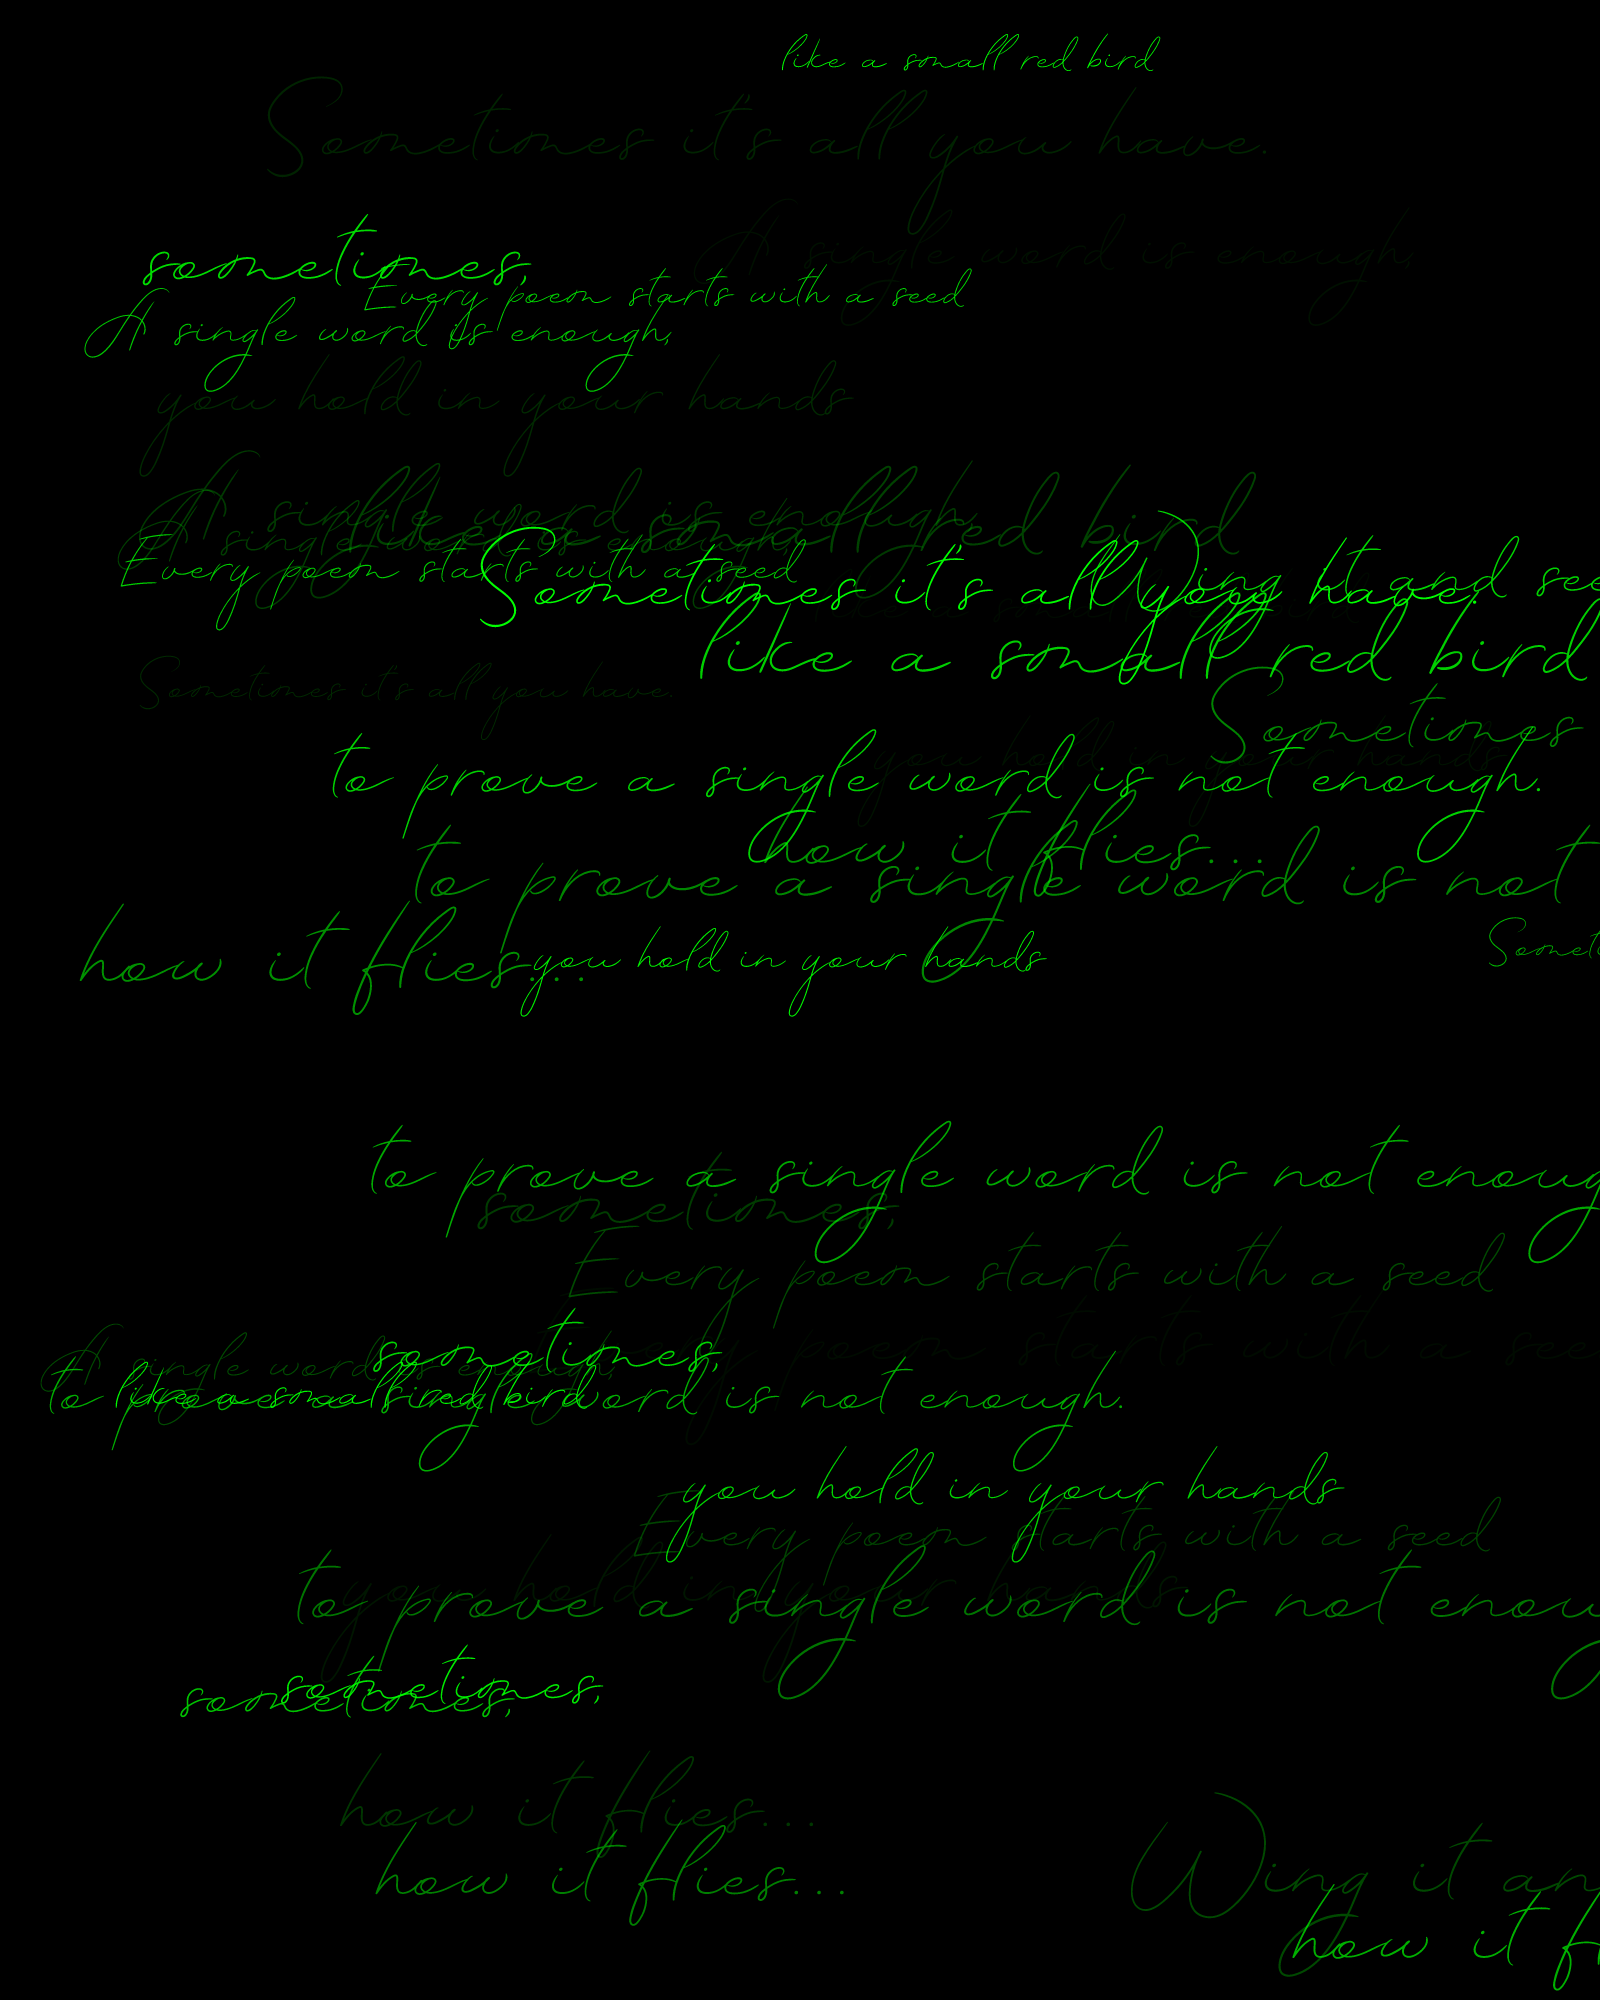 like a small red bird
Sometimes it's all you have.
sometimes,
A single word is enough,
Every poem starts with a seed
A single word is enough,
you hold in your hands
A single word is enough,
like a small red bird
A single word is enough,
Every poem starts with a seed
Sometimes it's all you have.
Wing it and see
like a small red bird
Sometimes it's all you have.
Sometimes
you hold in your hands
to prove a single word is not enough.
how it flies...
to prove a single word is not
how it flies...
you hold in your hands
Someti
to prove a single word is not enoug
sometimes,
Every poem starts with a seed
poem starts with a see
A single word is enough,
sometimes,
to prove a single word is not enough.
like a small red bird
you hold in your hands
Every poem starts with a seed
you hold in your hands
to prove a single word is not enou
sometimes,
sometimes,
how it flies...
how it flies...
Wing it an
how it f